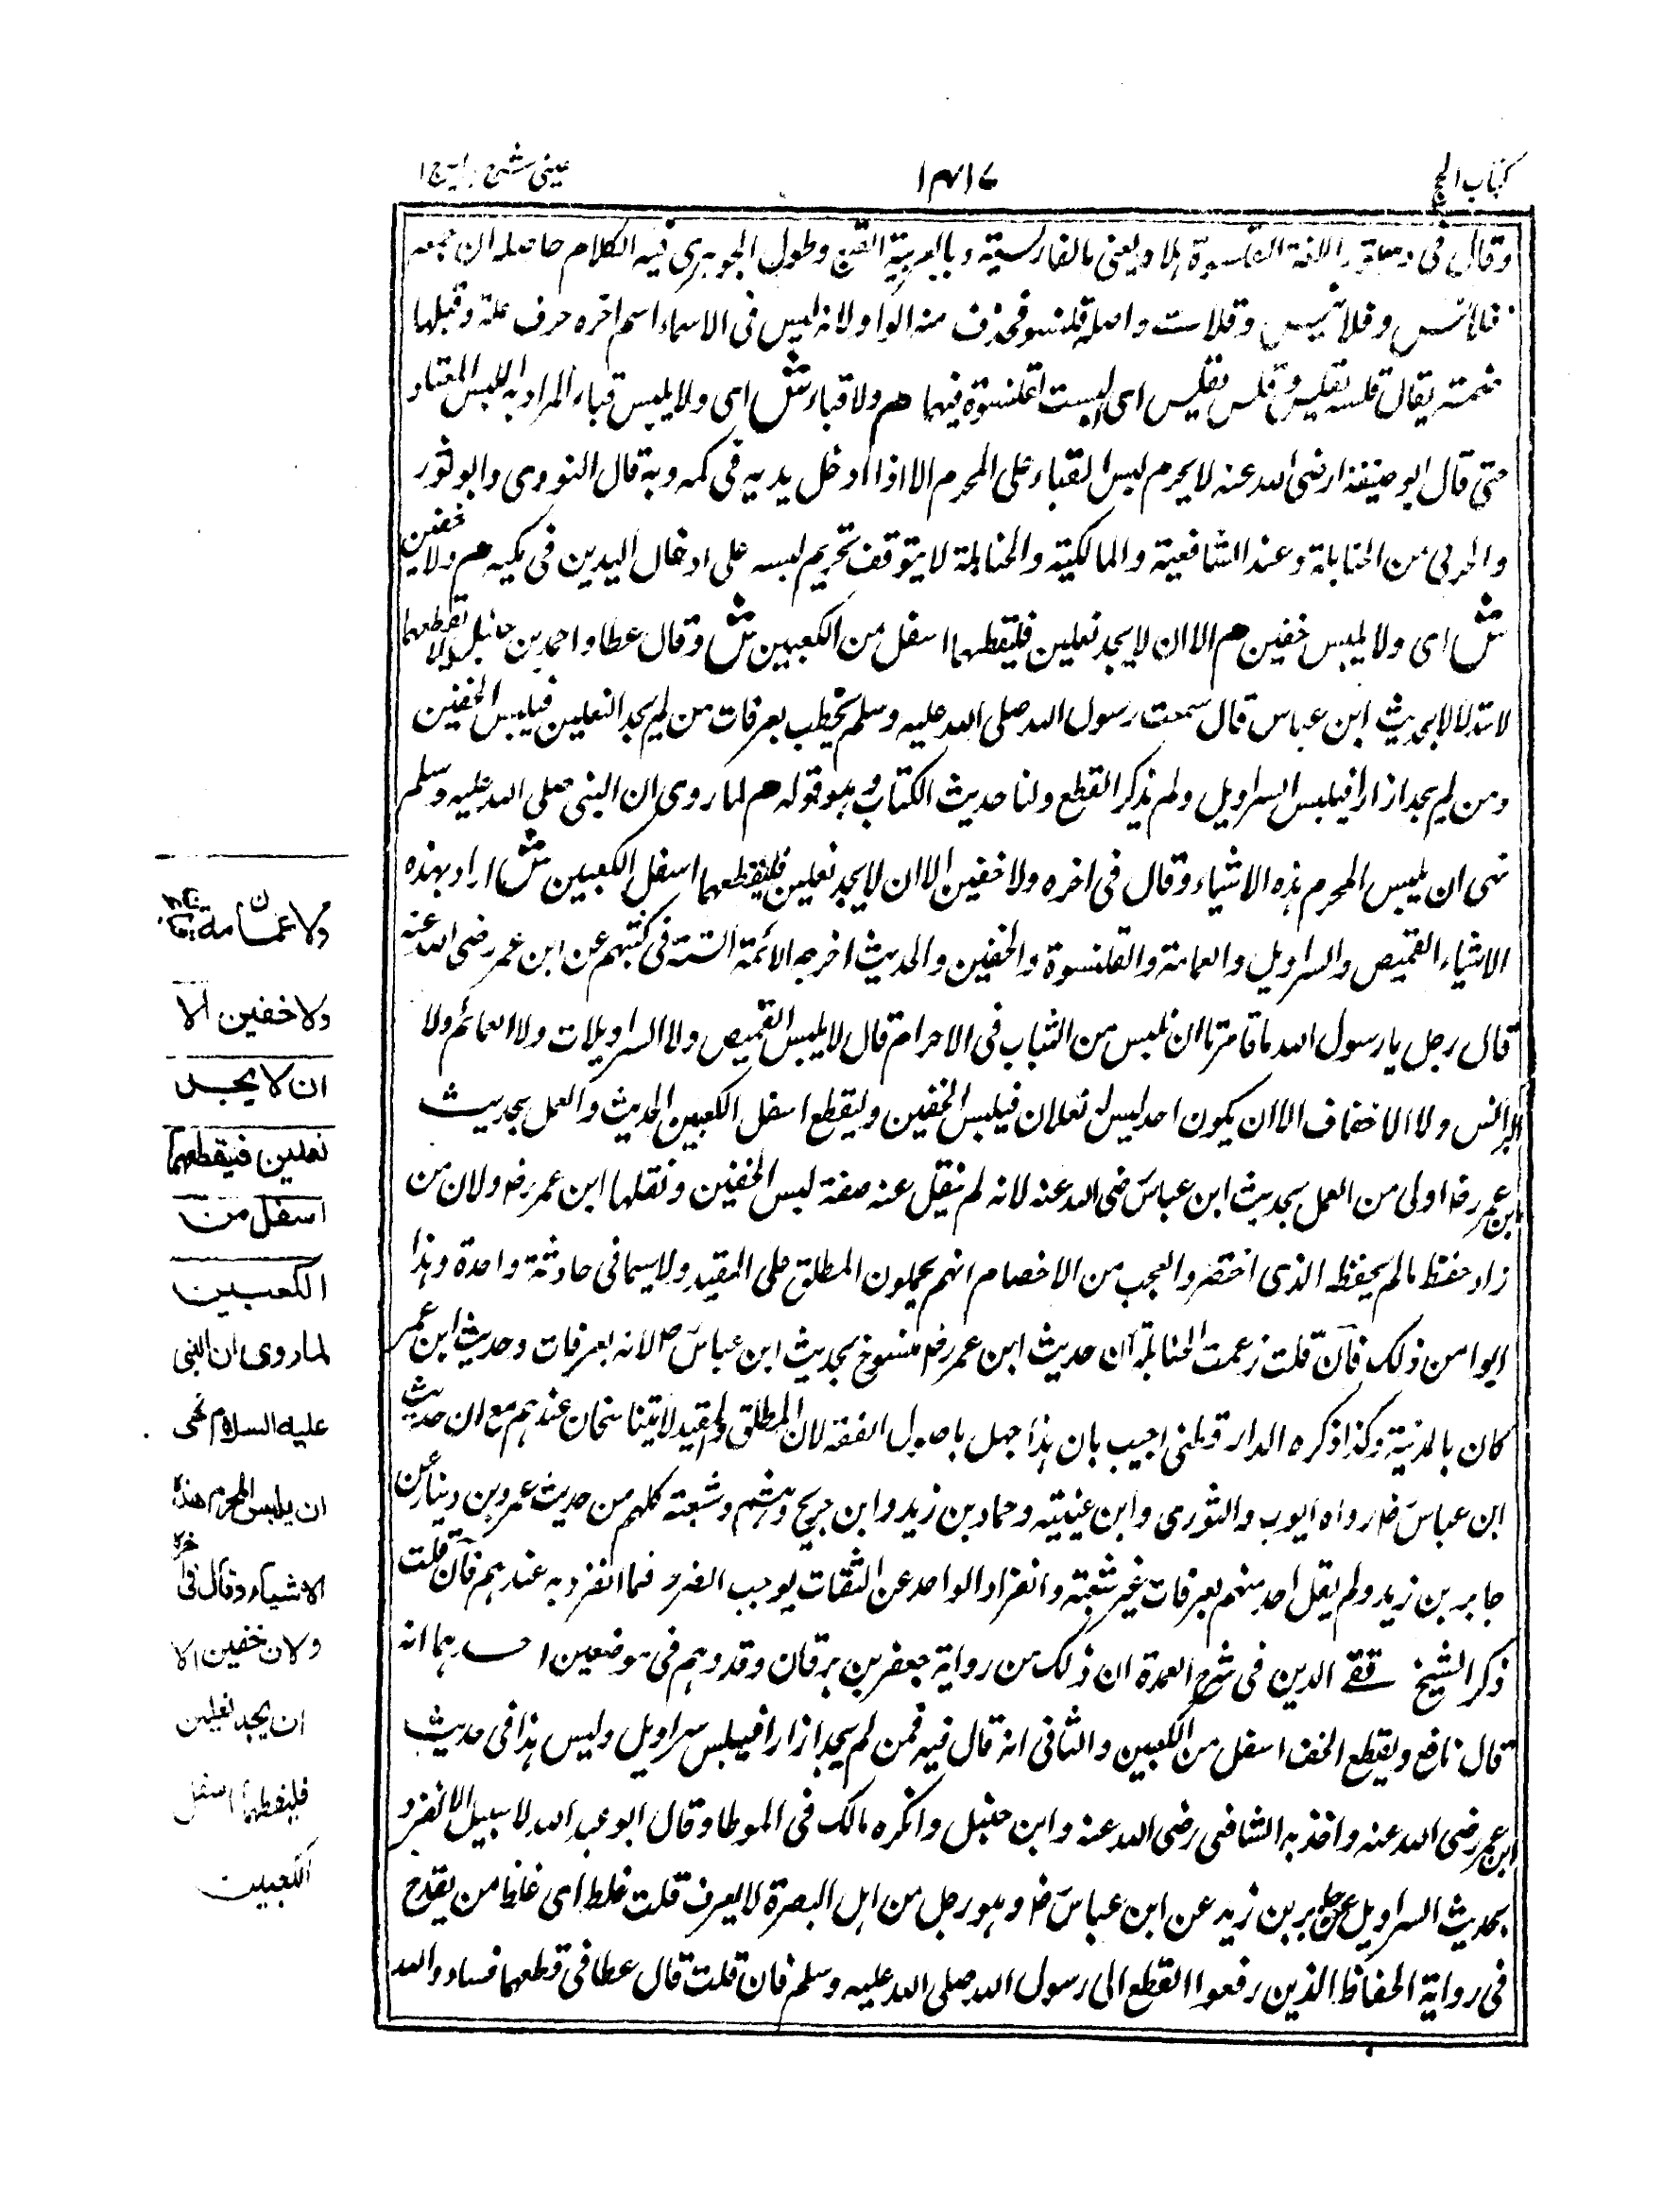 كتاب الحج
١٤١٧
عينى شرح هداية ج ١
وقال فى دستور اللغة القلنسوة كلاه يعنى بالفارسية وبالعربية القبع وطول الجوهرى فيه الكلام حاصله ان جمعه
قلانس وقلانيس وقلاست واصله قلنسو فحذف منه الواو لانه ليس فى الاسماء اسم اخره حرف علة وقبلها
ضمة يقال قلسه تقليس وتقلس تقليس اى لبست القلنسوة فيهما هم ولا قباء ش اى ولا يلبس قباء المراد به اللبس المعتاد
حتى قال ابو حنيفة رضى الله عنه لا يحرم لبس القباء على المحرم الا اذا ادخل يديه فى كمه وبه قال النووى وابو ثور
والحربى من الحنابلة وعند الشافعية والمالكية والحنابلة لا يتوقف تحريم لبسه على ادخال اليدين فى كميه هم ولا خفين
ش اى ولا يلبس خفين هم الا ان لا يجد نعلين فليقطهما اسفل من الكعبين ش وقال عطا و احمد بن حنبل لا يقطعهما
لاستدلالا بحديث ابن عباس قال سمعت رسول الله صلى الله عليه وسلم يخطب بعرفات من لم يجد النعلين فيلبس الخفين
ومن لم يجد ازارا فيلبس السراويل ولم يذكر القطع ولنا حديث الكتاب وهو قوله هم لما روى ان النبى صلى الله عليه وسلم
نهى ان يلبس المحرم هذه الاشياء وقال فى اخره ولا خفين الا ان لا يجد نعلين فليقطعهما اسفل الكعبين ش اراد بهذه
الاشياء القميص والسراويل والعمامة والقلنسوة والخفين والحديث اخرجه الائمة الستة فى كتبهم عن ابن عمر رضى الله عنه
قال رجل يا رسول الله ما تامرنا ان نلبس من الثياب فى الاحرام قال لا يلبس القميص ولا السراويلات ولا العمائم ولا
البرانس ولا الاخفاف الا ان يكون احد ليس له نعلان فيلبس الخفين وليقطع اسفل الكعبين الحديث والعمل بحديث
ابن عمر رض اولى من العمل بحديث ابن عباس رضى الله عنه لانه لم ينقل عنه صفة لبس الخفين ونقلها ابن عمر رض ولان من
زاد حفظ ما لم يحفظه الذى اختصر والعجب من الاخصام انهم يحملون المطلق على المقيد ولا سيما فى حادثة واحدة وهذا
ابوا من ذلك فان قلت زعمت الحنابلة ان حديث ابن عمر رض منسوخ بحديث ابن عباس رض لانه بعرفات وحديث ابن عمر
كان بالمدينة وكذا ذكره الدار قطنى اجيب بان هذا جهل باصول الفقه لان المطلق والمقيد لا يتناسخان عندهم مع ان حديث
ابن عباس رض رواه ايوب والثورى وابن عيينة وحماد بن زيد وابن جريج وهشيم وشعبة كلهم من حديث عمرو بن دينار عن
جابر بن زيد ولم يقل احد منهم بعرفات غير شعبة وانفراد الواحد عن الثقات يوجب الضرر فما انفرد به عندهم فان قلت
ذكر الشيخ تقى الدين فى شرح العمدة ان ذلك من رواية جعفر بن برقان وقد وهم فى موضعين احدهما انه
قال نافع ويقطع الخف اسفل من الكعبين والثانى انه قال فيه فمن لم يجد ازارا فيلبس سراويل وليس هذا فى حديث
ابن عمر رضى الله عنه واخذ به الشافعى رضى الله عنه وابن حنبل وانكره مالك فى الموطا وقال ابو عبد الله لا سبيل الا نفرد
بحديث السراويل عن جابر بن زيد عن ابن عباس رض وهو رجل من اهل البصرة لا يعرف قلت غلط اى غلطا من يقدح
فى رواية الحفاظ الذين رفعوا القطع الى رسول الله صلى الله عليه وسلم فان قلت قال عطا فى قطعهما فساد والله
ولا عمامة
ولا خفين الا
ان لا يجد
نعلين فيقطعهما
اسفل من
الكعبين
لما روى ان النبى
عليه السلام نهى
ان يلبس المحرم هذه
الاشياء وقال فى اخره
ولا خفين الا
ان يجد نعلين
فليقطهما اسفل
الكعبين